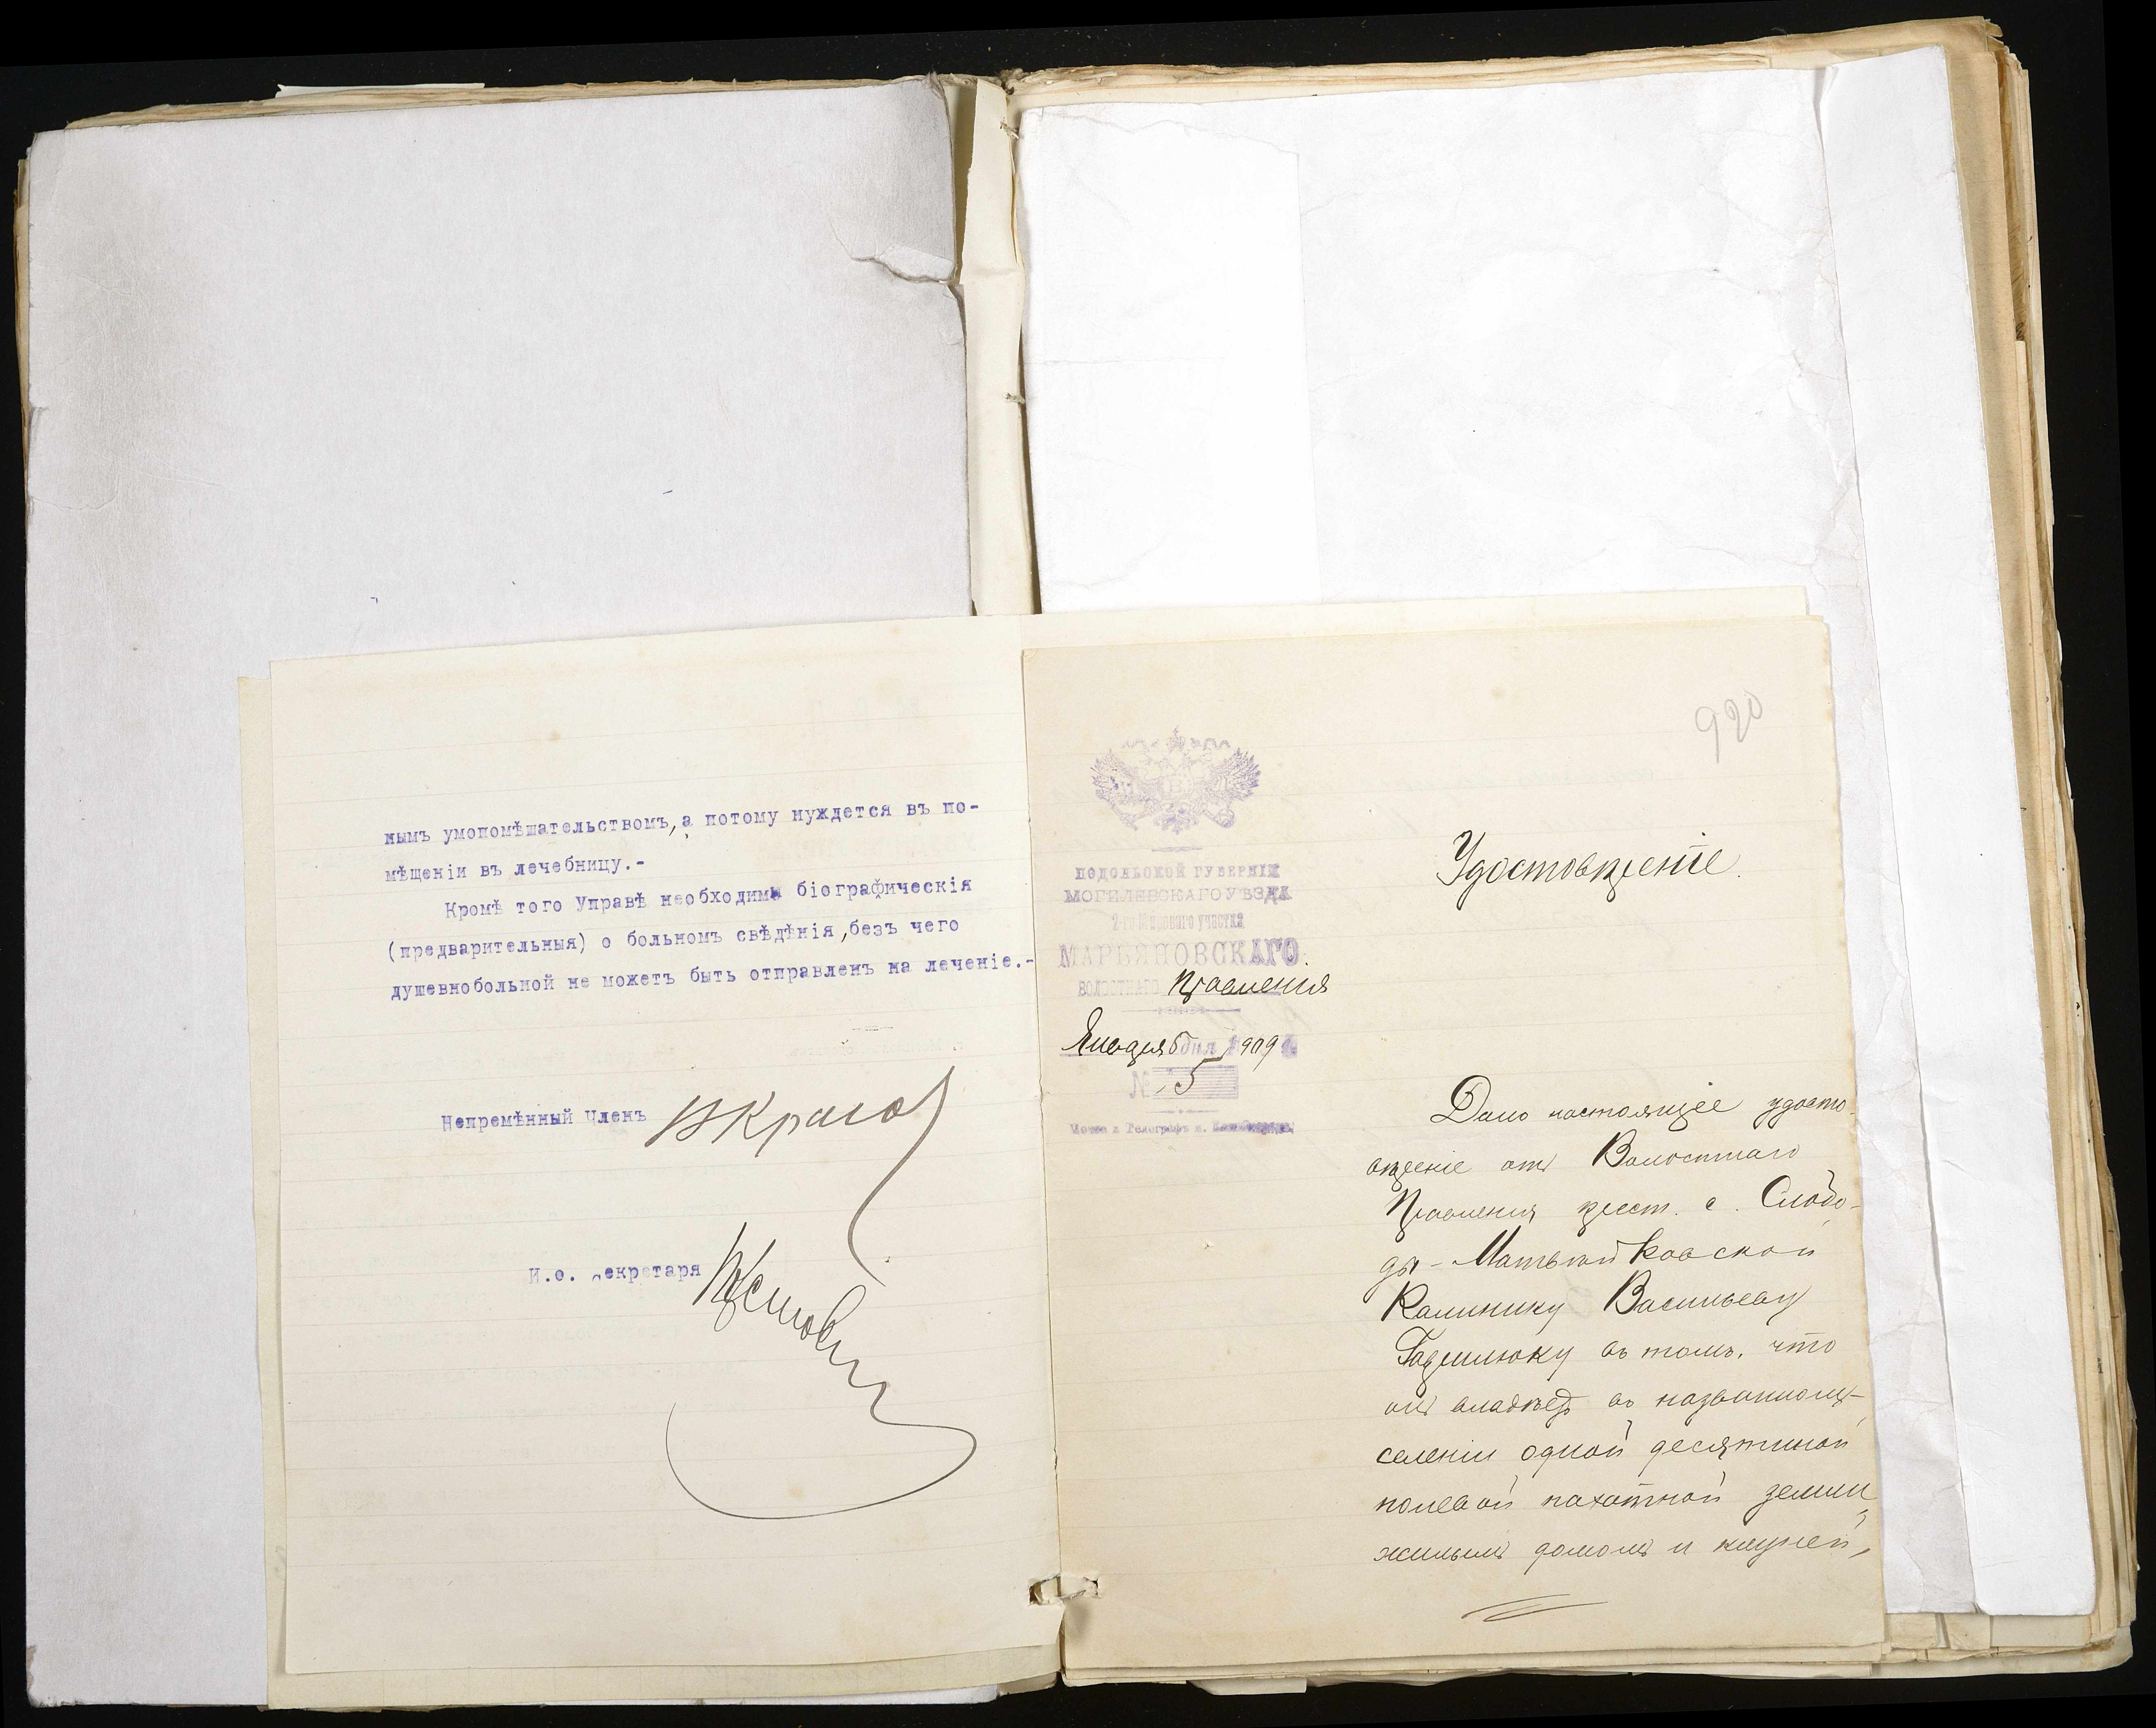 нымъ умопомѣшательствомъ, а потому нуждется въ по-
мѣщеніи въ лечебницу.-
Кромѣ того Управѣ необходимы біографическія
(предварительныя) о больномъ свѣдѣнія, безъ чего
душевнобольной не можетъ быть отправленъ на леченіе.-
Непремѣнный Членъ
И.о. секретаря
920
ПОДОЛЬСКОЙ ГУБЕРНІИ
МОГИЛЕВСКАГО УѢЗДА
2-го Мирового участка
МАРЬЯНОВСКАГО
ВОЛОСТНАГО Правленія
Января 5 дня 1909 г.
№ 5
Почта и Телеграфъ
Удостовѣреніе.
Дано настоящее удосто-
вѣреніе отъ Волостнаго
Правленія крест. с. Слобо-
ды-Матвѣйковской
Калинику Васильеву
Гаврилюку въ томъ, что
онъ владѣетъ въ названномъ
селеніи одной десятиной
полевой пахатной земли,
жилымъ домомъ и клуней,